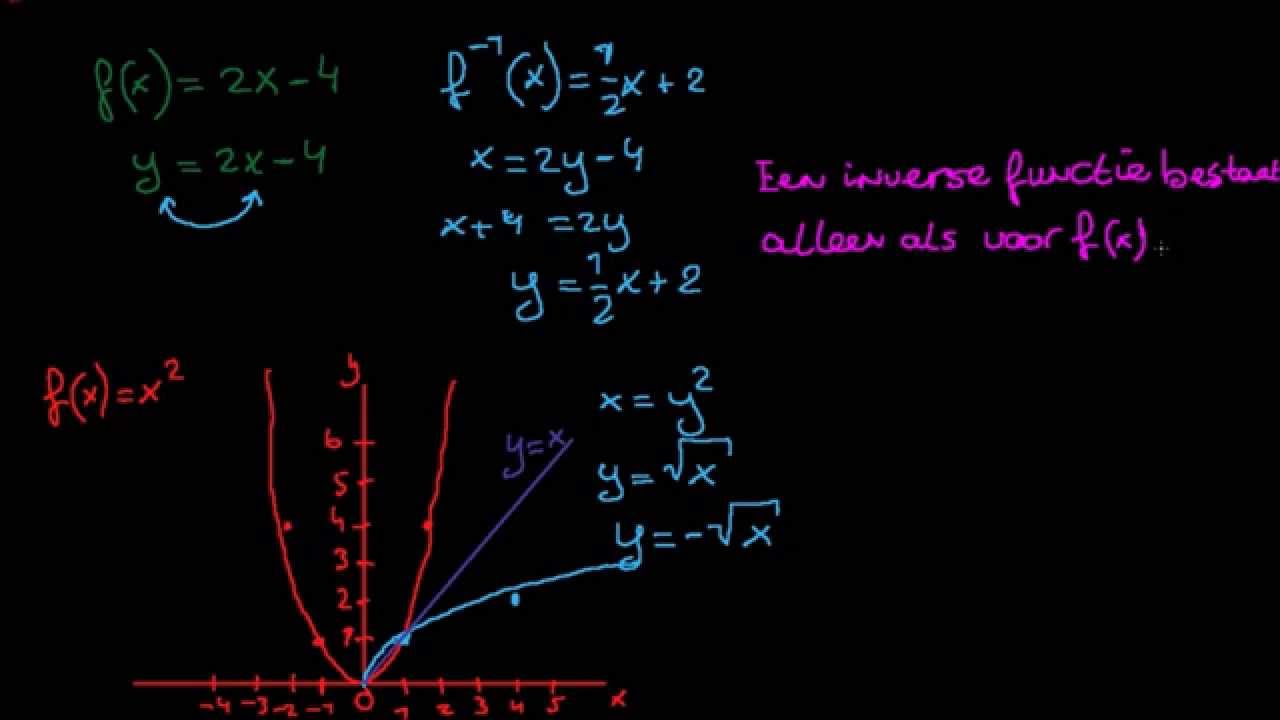 f(x) = 2x - 4
y = 2x - 4
f⁻¹(x) = 1/2 x + 2
x = 2y - 4
x + 4 = 2y
y = 1/2 x + 2
Een inverse functie bestaat
alleen als voor f(x)
f(x) = x²
y
6
5
4
3
2
1
-4 -3 -2 -1 0 1 2 3 4 5 x
y = x
x = y²
y = √x
y = -√x